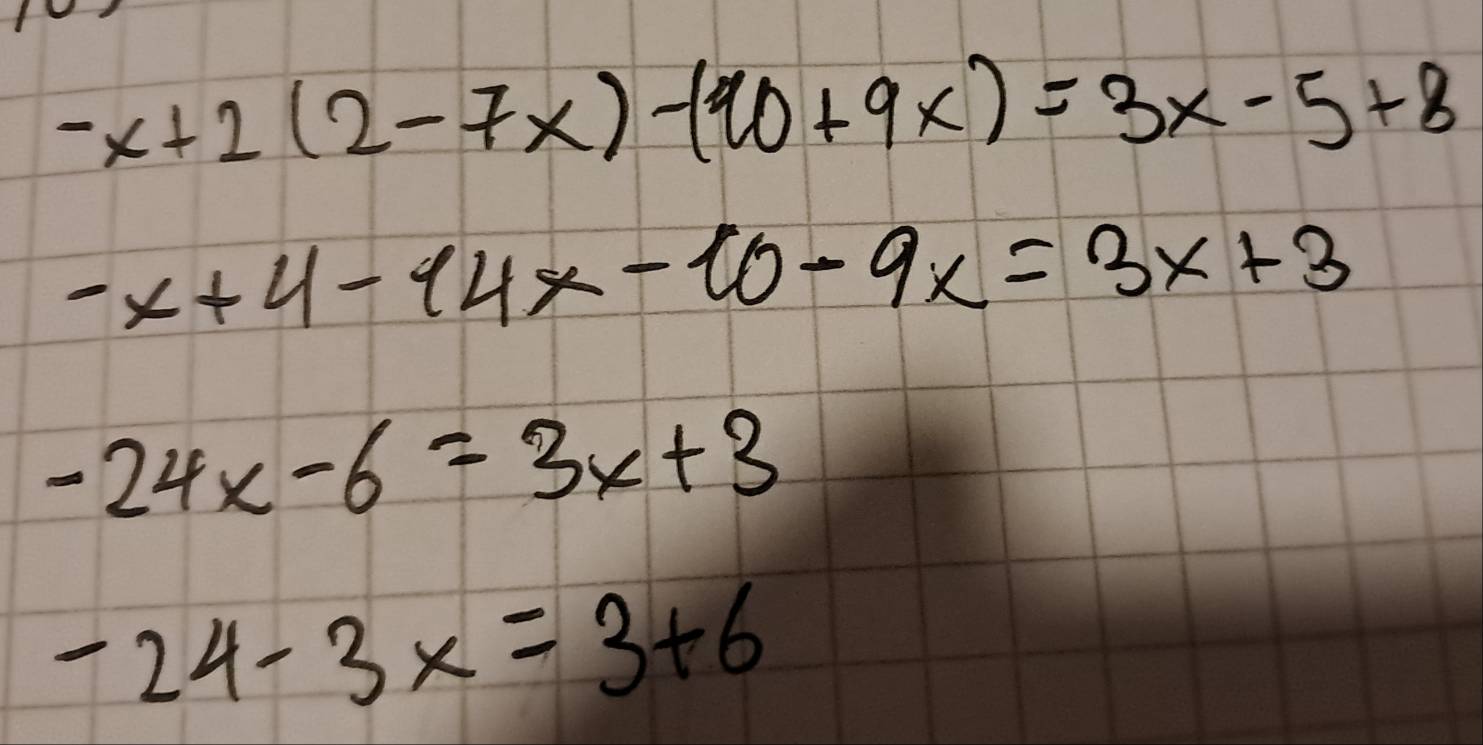 -x+2(2-7x)-(10+9x)=3x-5+8
-x+4-14x-10-9x=3x+3
-24x-6=3x+3
-24-3x=3+6